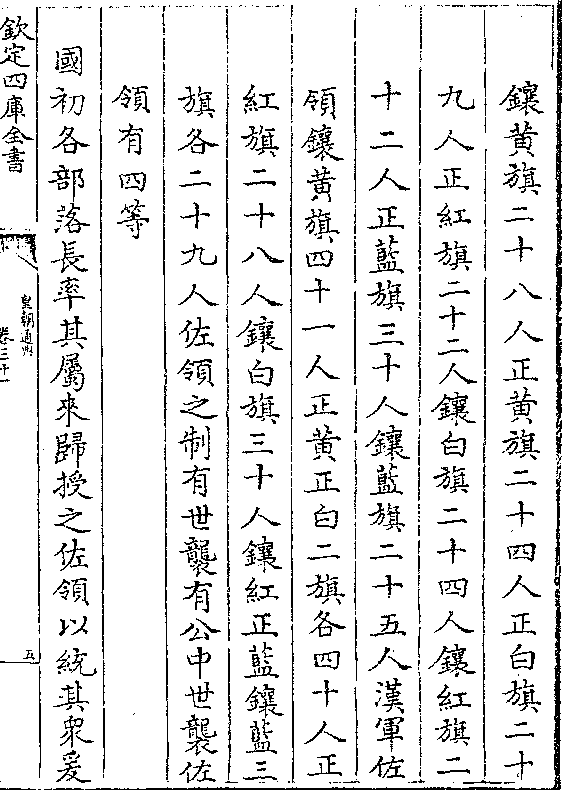 鑲黄旗二十八人正黄旗二十四人正白旗二十
九人正紅旗二十二人鑲白旗二十四人鑲紅旗二
十二人正藍旗三十人鑲藍旗二十五人漢軍佐
領鑲黄旗四十一人正黄正白二旗各四十人正
紅旗二十八人鑲白旗三十人鑲紅正藍鑲藍三
旗各二十九人佐領之制有世襲有公中世襲佐
領有四等
國初各部落長率其屬來歸授之佐領以統其衆爰
欽定四庫全書
皇朝通州
卷三十一
五